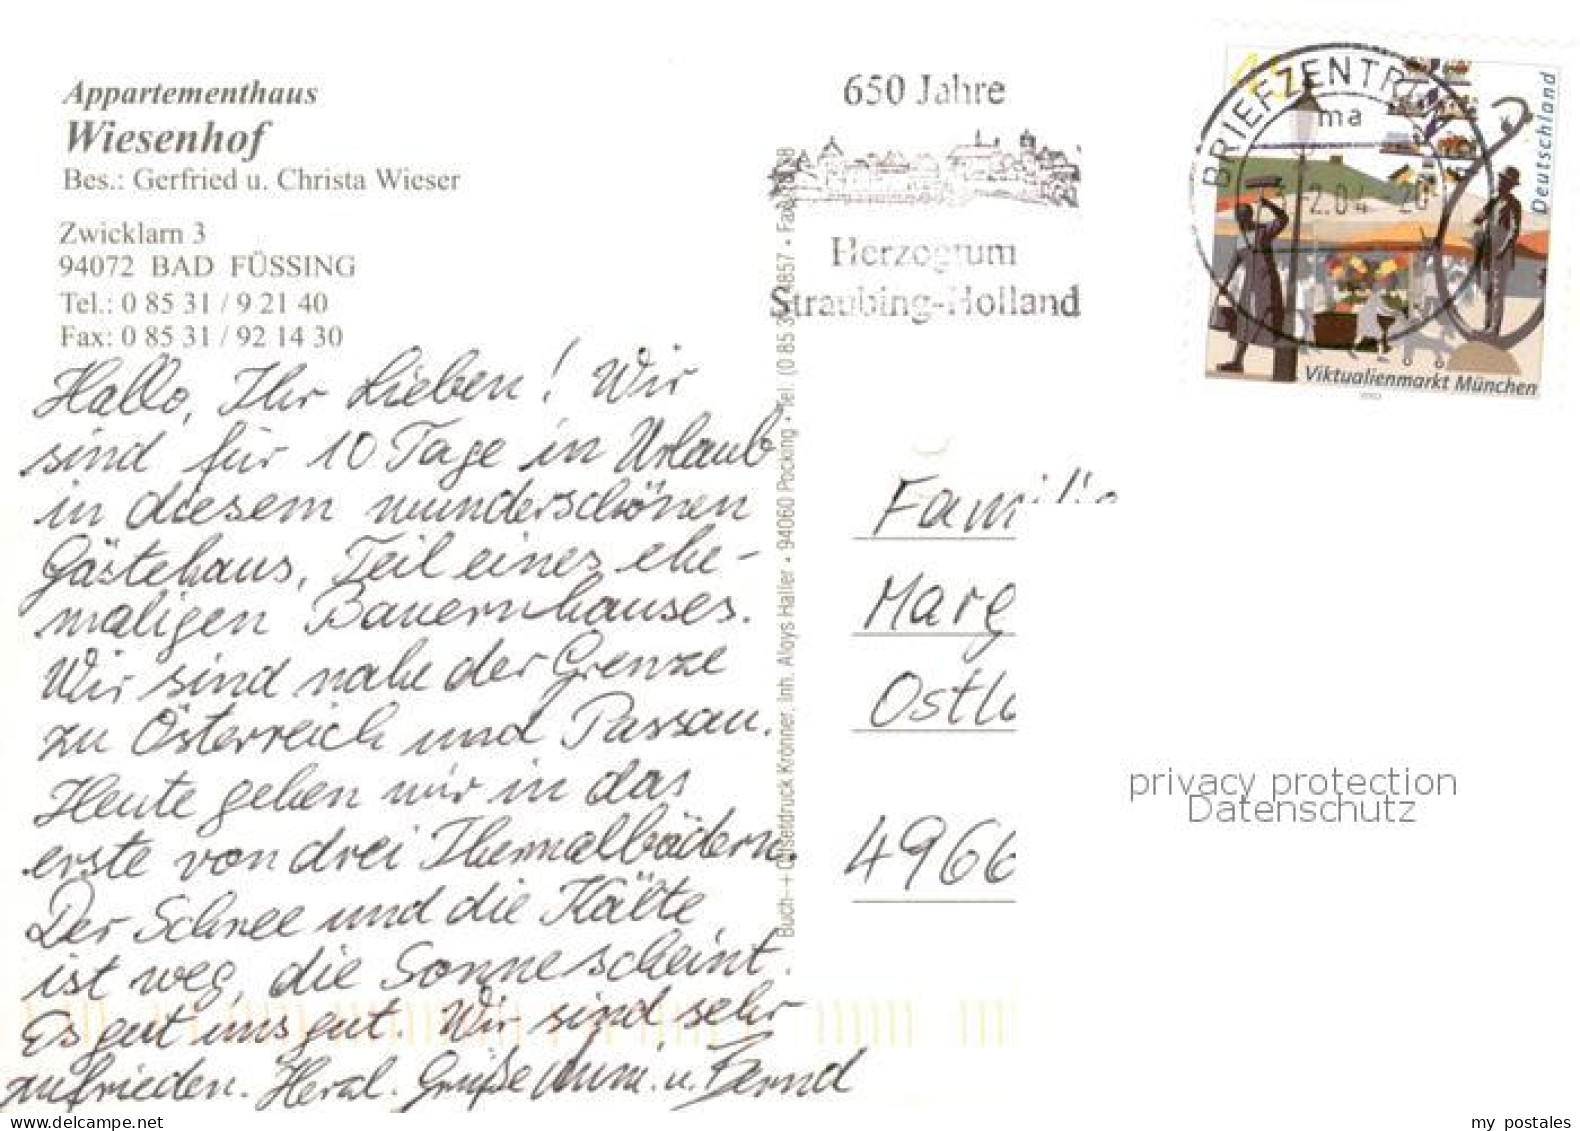 Appartementhaus
Wiesenhof
Bes.: Gerfried u. Christa Wieser
Zwicklarn 3
94072 BAD FÜSSING
Tel.: 0 85 31 / 9 21 40
Fax: 0 85 31 / 92 14 30
Hallo, Ihr Lieben! Wir
sind für 10 Tage in Urlaub
in diesem wunderschönen
Gästehaus, Teil eines ehe-
maligen Bauernhauses.
Wir sind nahe der Grenze
zu Österreich und Passau.
Heute gehen wir in das
erste von drei Thermalbädern.
Der Schnee und die Kälte
ist weg, die Sonne scheint.
Es geht uns gut. Wir sind sehr
zufrieden. Herzl. Grüße u. Bernd
Buch- + Offsetdruck Krönner, Inh. Aloys Haller • 94060 Pocking • Tel. (0 85 31) 4857 • Fax
650 Jahre
Herzogtum
Straubing-Holland
BRIEFZENTRUM
ma
2.04
Deutschland
Viktualienmarkt München
Familie
Marg
Ostl
4966
privacy protection
Datenschutz
www.delcampe.net
my postales